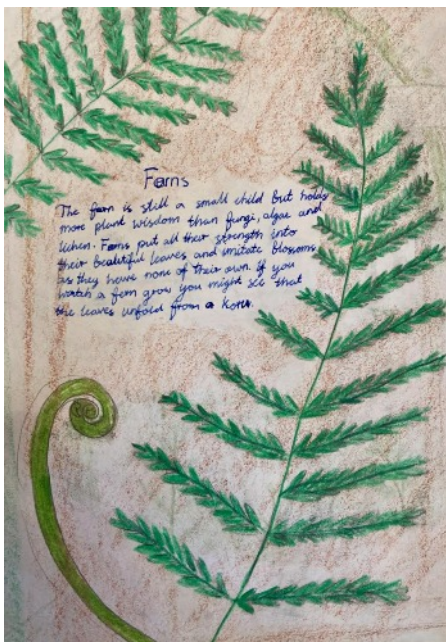 Ferns
The fern is still a small child but holds
more plant wisdom than fungi, algae and
lichen. Ferns put all their strength into
their beautiful leaves and imitate blossoms
as they have none of their own. If you
watch a fern grow you might see that
the leaves unfold from a koru.